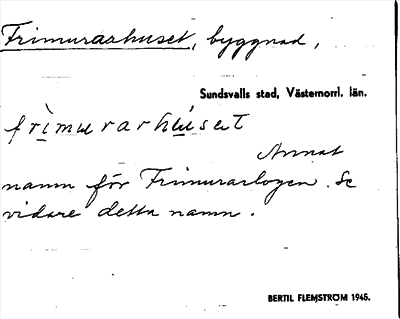 Frimurarhuset, byggnad,
Sundsvalls stad, Västernorrl. län.
frimurarhúset
Annat
namn för Frimurarlogen. Se
vidare detta namn.
BERTIL FLEMSTRÖM 1945.